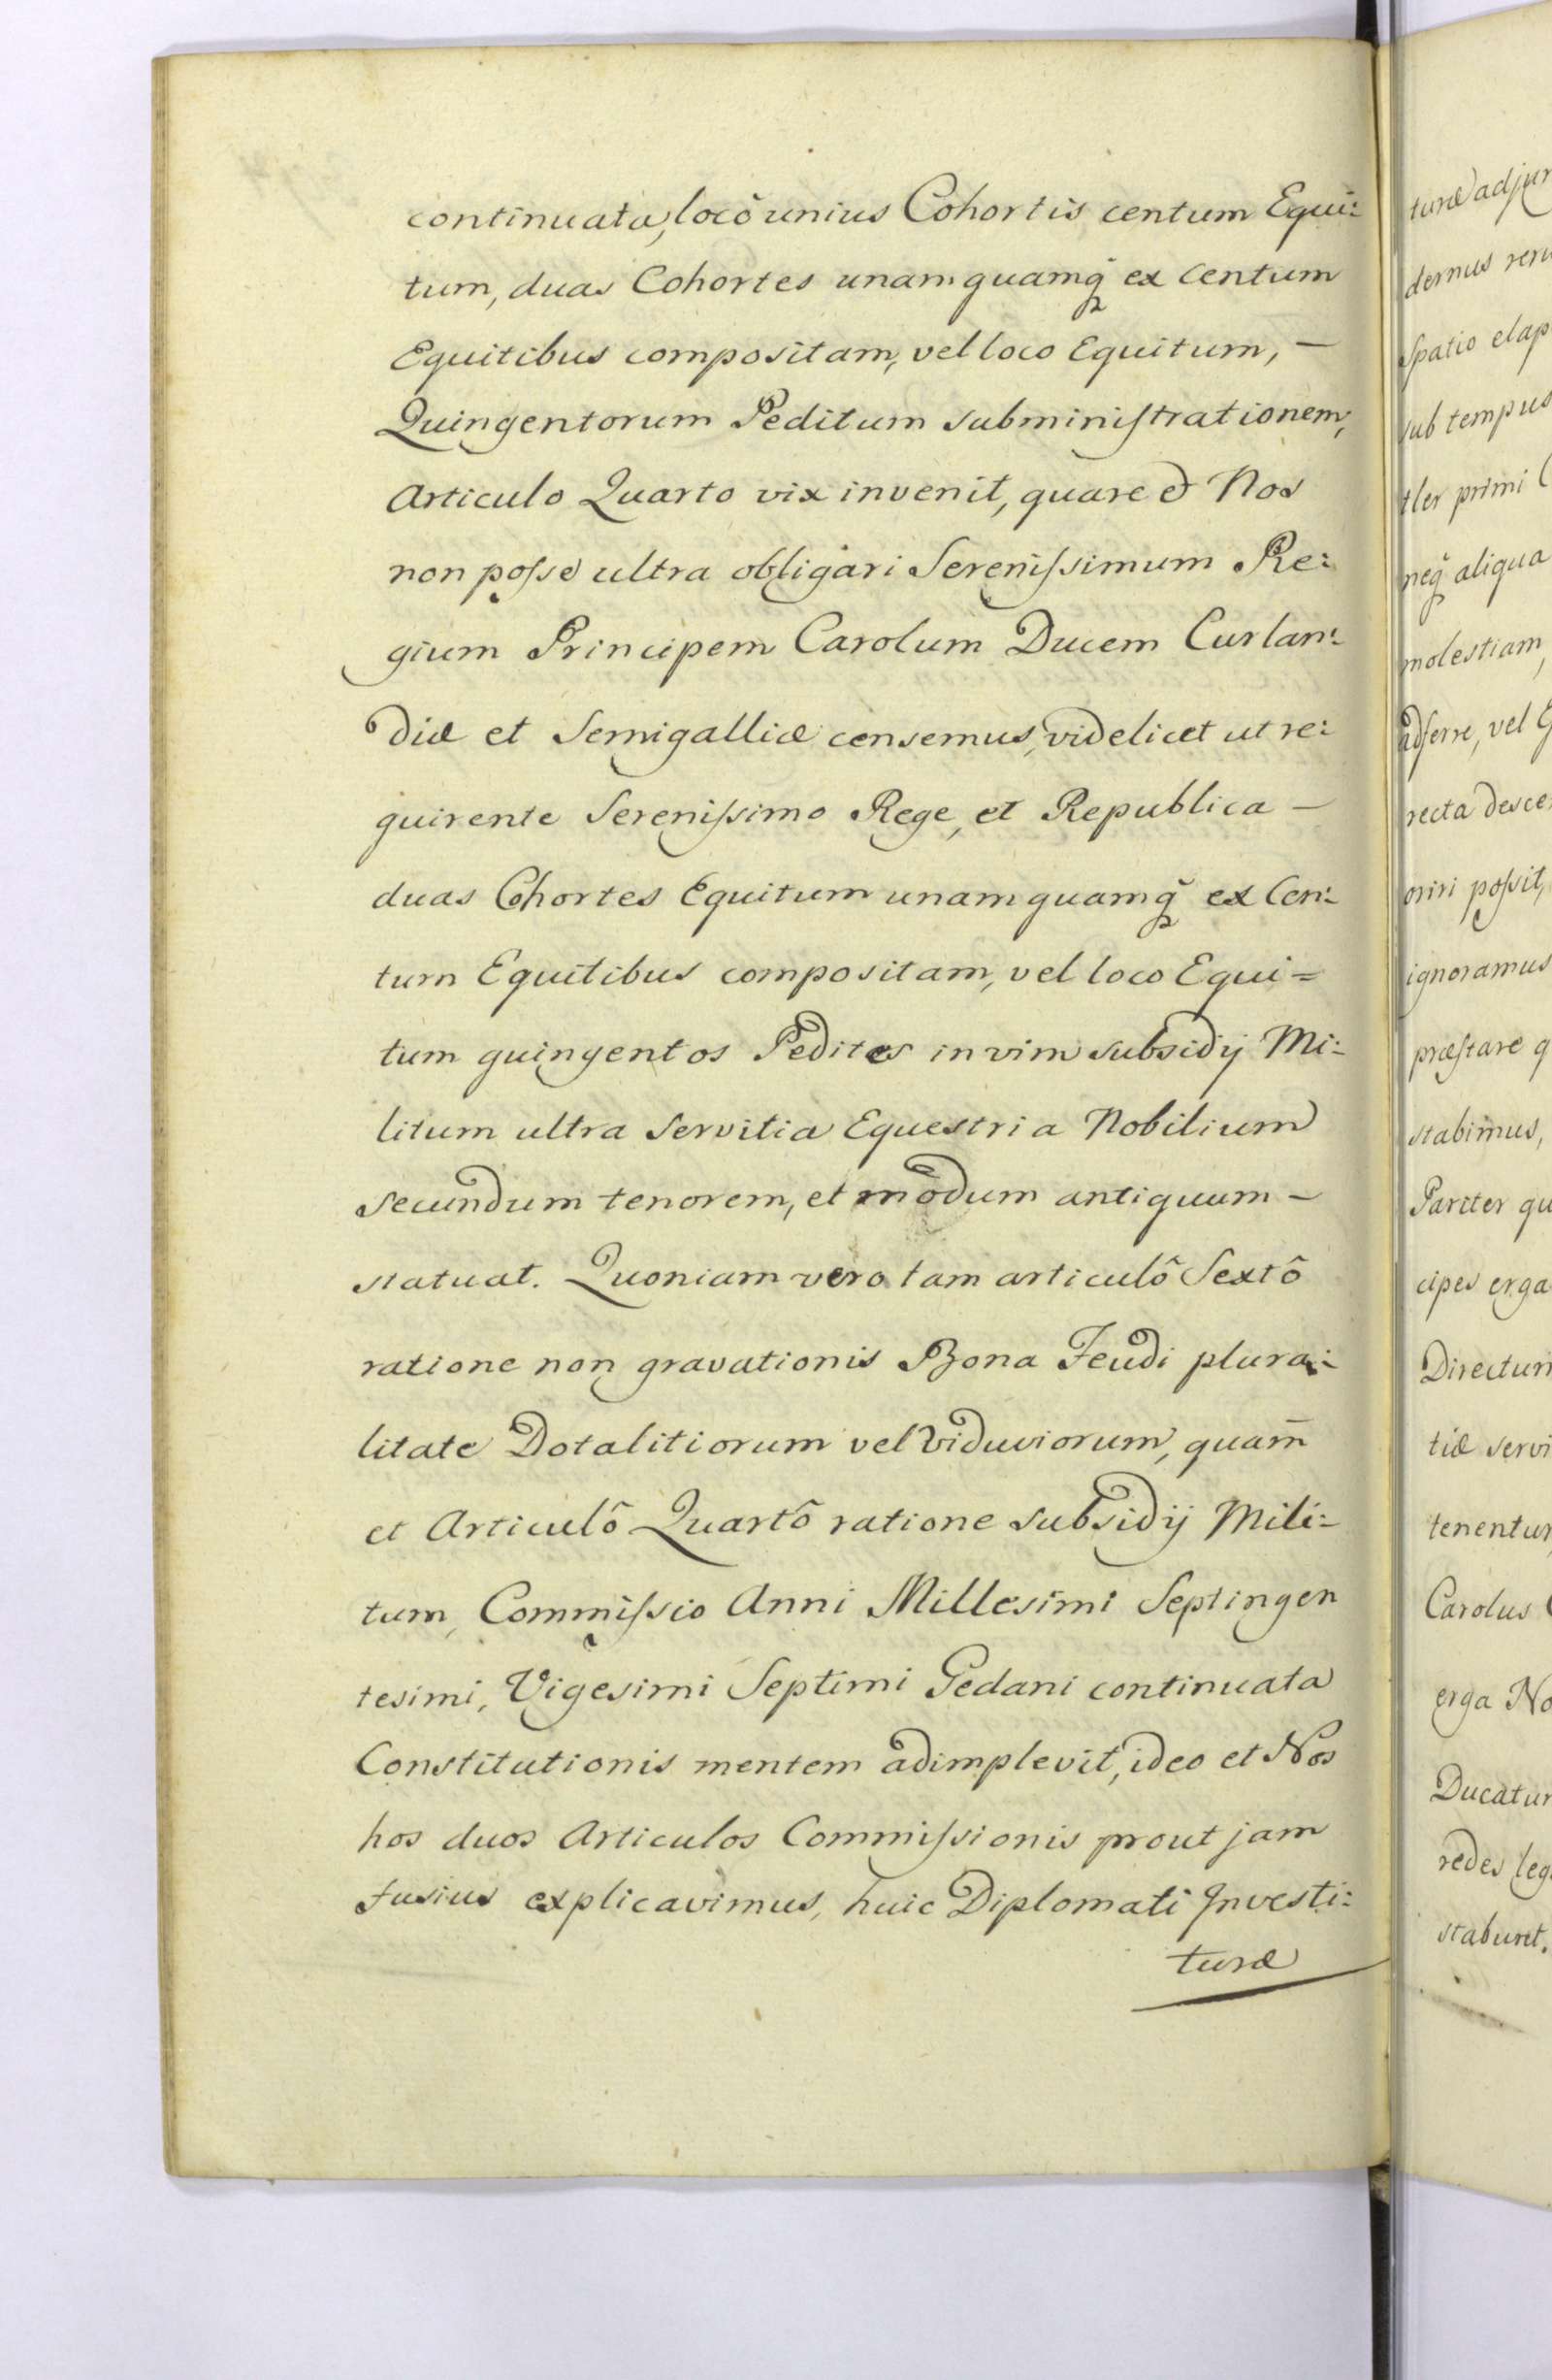 continuata, locô unius Cohortis centum Equi:
tum, duas Cohortes unamquamq̃ ex Centum
Equitibus compositam, vel loco Equitum, –
Quingentorum Peditum subminiſtrationem,
Articulo Quarto vix invenit, quare & Nos
non poſse ultra obligari Sereniſsimum Re:
gium Principem Carolum Ducem Curlan:
diæ et Semigalliæ censemus, videlicet ut re:
quirente Sereniſsimo Rege, et Republica –
duas Cohortes Equitum unamquamq̃ ex Cen:
tum Equitibus compositam, vel loco Equi=
tum quingentos Pedites in vim subsidij Mi:
litum ultra Servitia Equestria Nobilium
Secundum tenorem, et modum antiquum –
statuat. Quoniam vero tam articulô Sextô
ratione non gravationis Bona Feudi plura:
litate Dotalitiorum vel Viduviorum, quam̄
et Articulô Quartô ratione Subsidij Mili:
tum, Commiſsio Anni Millesimi Septingen
tesimi, Vigesimi Septimi Gedani continuata
Constitutionis mentem adimplevit, ideo et Nos
hos duos Articulos Commiſsionis prout jam
fusius explicavimus, huic Diplomati Investi:
turæ
turæ adjun
dernus
Spatio elap
sub tempus
tler primi
neq̃ aliqua
molestiam,
adferre, vel
recta desce
oriri poſsit,
ignoramus
præſtare q
stabimus,
Pariter qu
cipes erga
Directum
tiæ servi
tenentur,
Carolus
erga No
Ducatu
redes leg
stabunt.